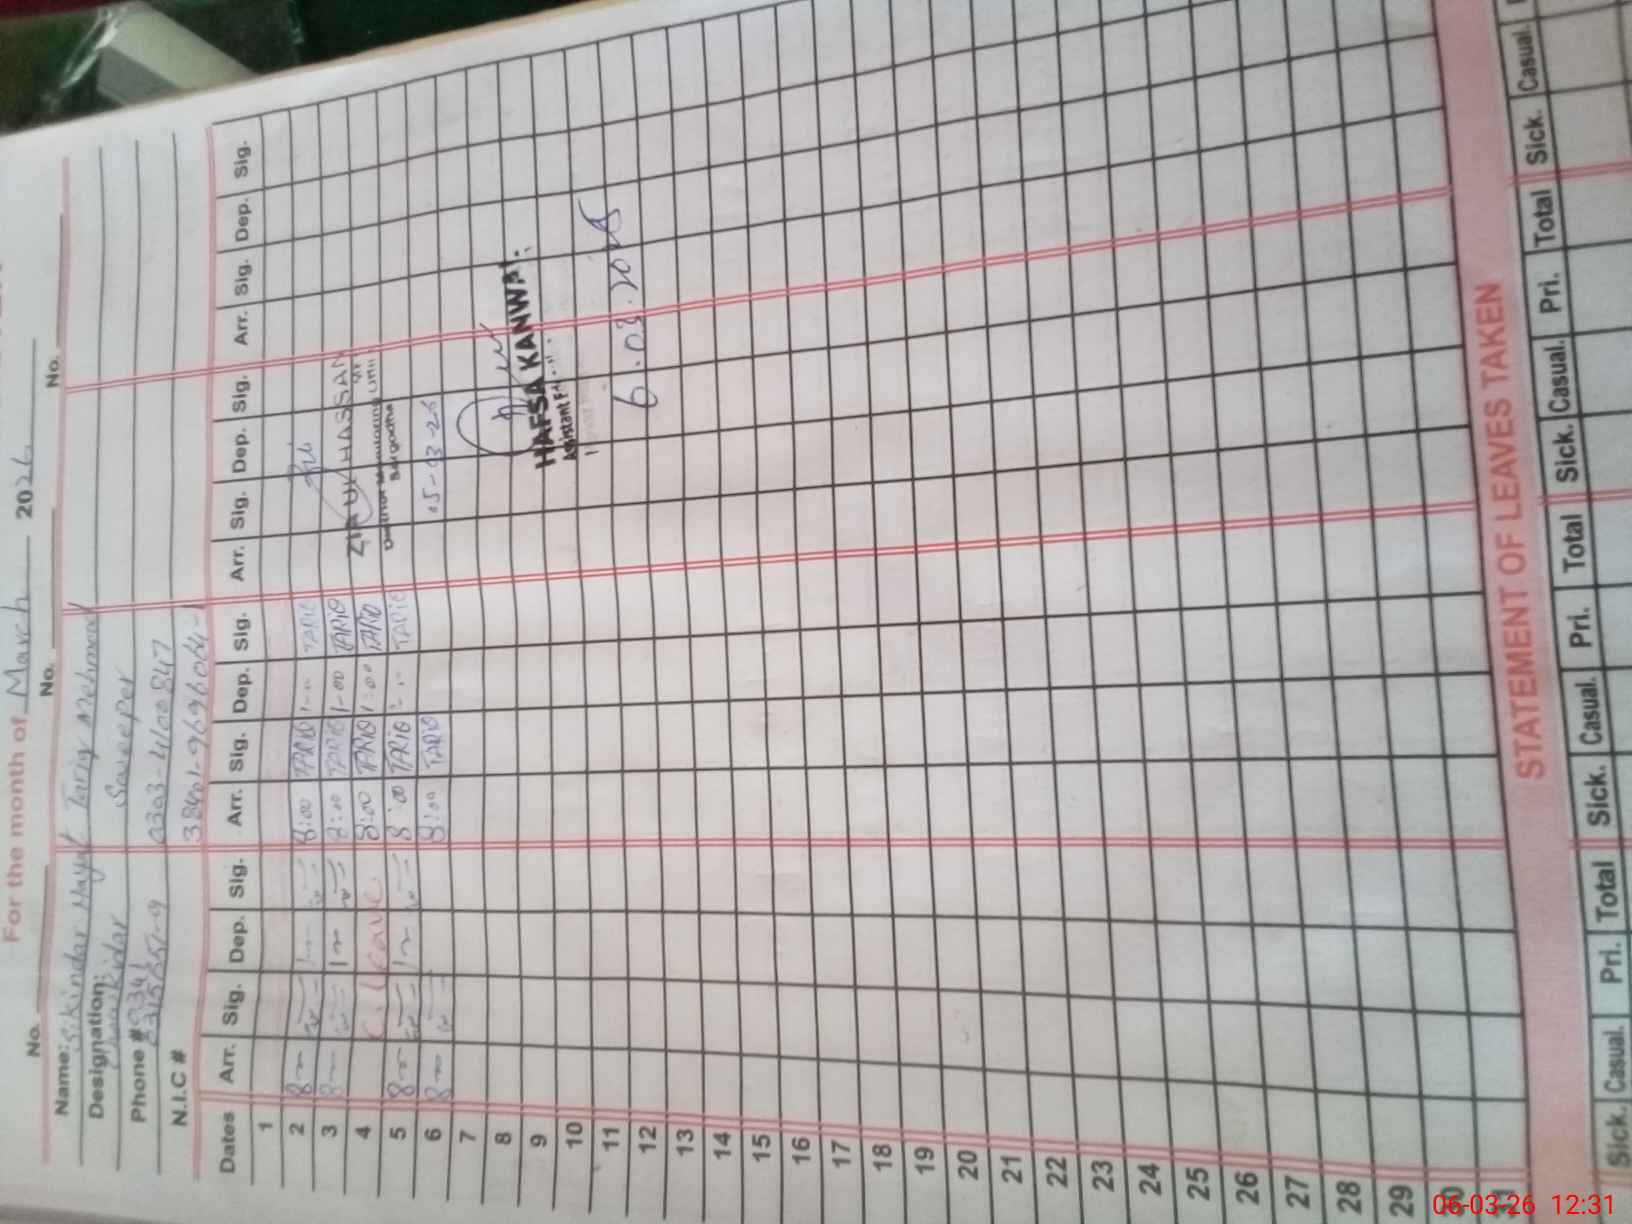 For the month of March 2026
No. No. No. No.
Name: Sikindar Hayat Tariq Mehmood
Designation: Chawkidar Sweeper
Phone # 0341 0303-4100847
N.I.C # 38401-9696064-1
Dates Arr. Sig. Dep. Sig. Arr. Sig. Dep. Sig. Arr. Sig. Dep. Sig. Arr. Sig. Dep. Sig.
1
2 8 1 8:00 TARIQ 1- TARIQ
3 8 1 8:00 TARIQ 1-00 TARIQ
4 C. Leave 8:00 TARIQ 1:00 TARIQ ZIA UL HASSAN
5 8 1 8:00 TARIQ TARIQ District Monitoring Unit
Sargodha
6 8 8:00 TARIQ 05-03-26
7
8
9 HAFSA KANWAL
10 Assistant
11
12 6.03.2026
13
14
15
16
17
18
19
20
21
22
23
24
25
26
27
28
29
30
31
STATEMENT OF LEAVES TAKEN
Sick. Casual. Pri. Total Sick. Casual. Pri. Total Sick. Casual. Pri. Total Sick. Casual.
06-03-26 12:31